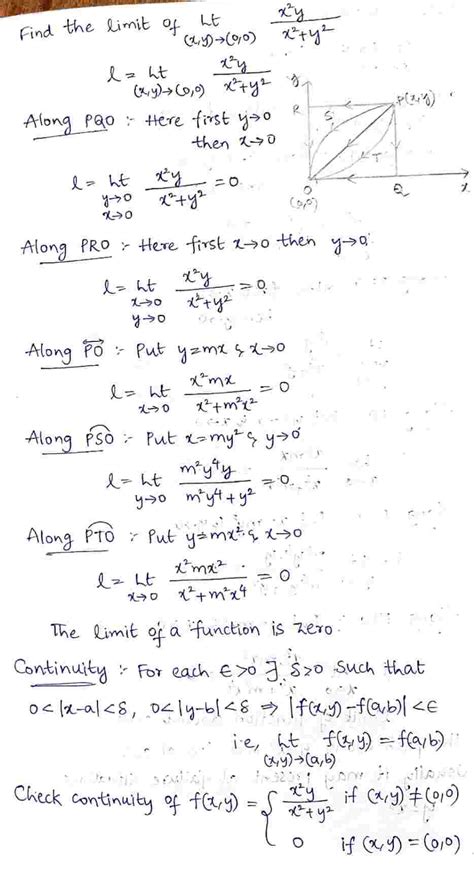 Find the limit of Lt (x,y)→(0,0) x²y / x²+y²
l = Lt (x,y)→(0,0) x²y / x²+y²
Along PQO :- Here first y→0
then x→0
l = Lt y→0 x→0 x²y / x²+y² = 0
y
R
S
P(x,y)
T
O
(0,0)
Q
x
Along PRO :- Here first x→0 then y→0.
l = Lt x→0 y→0 x²y / x²+y² = 0.
Along PO :- Put y=mx & x→0
l = Lt x→0 x²mx / x²+m²x² = 0
Along PSO :- Put x=my² & y→0
l = Lt y→0 m²y⁴y / m²y⁴+y² = 0.
Along PTO :- Put y=mx² & x→0
l = Lt x→0 x²mx² / x²+m²x⁴ = 0
The limit of a function is zero.
Continuity :- For each ∈>0 ∃ δ>0 such that
0<|x-a|<δ, 0<|y-b|<δ ⇒ |f(x,y)-f(a,b)|<∈
i.e, Lt (x,y)→(a,b) f(x,y) = f(a,b)
Check continuity of f(x,y) = { x²y / x²+y² if (x,y)≠(0,0)
0 if (x,y)=(0,0)